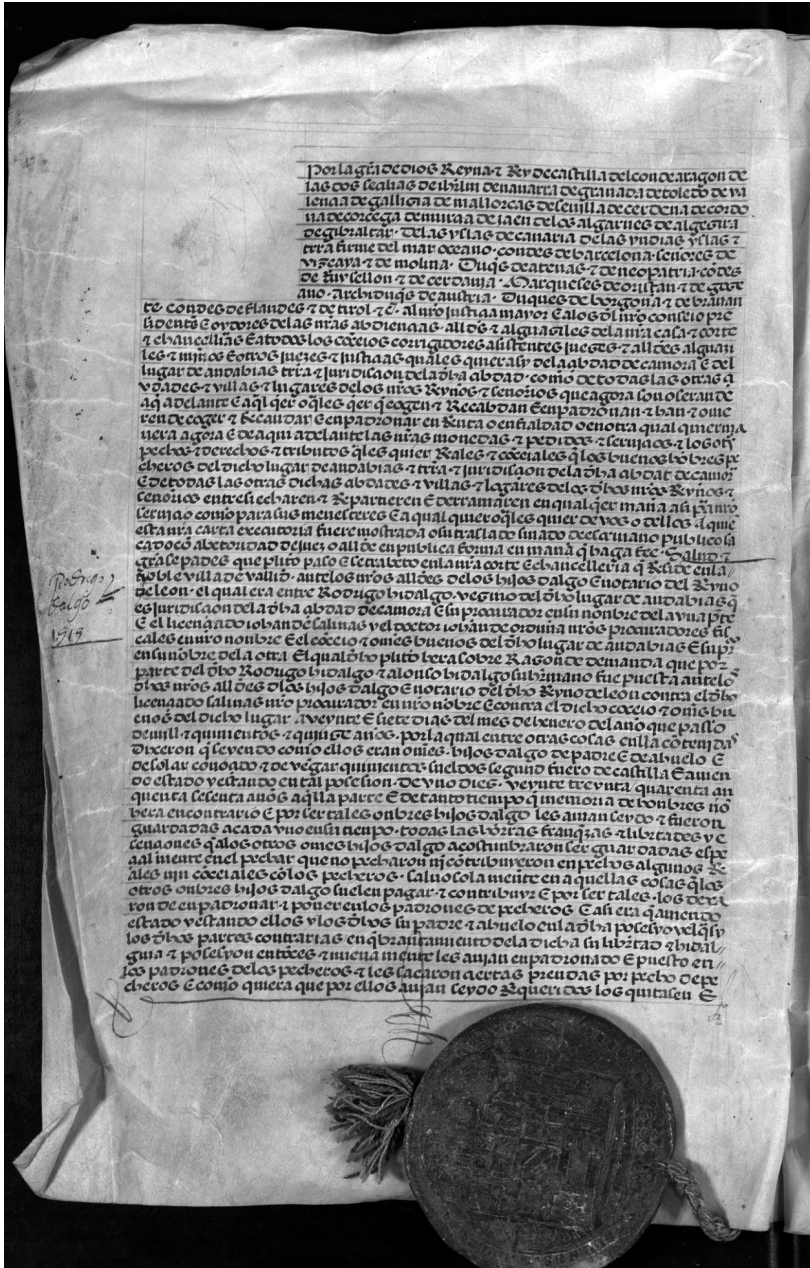 Por la grã de dios Reyna ⁊ Rey de castilla de leon de aragon de
las dos secilias de ihrlm de navarra de granada de toledo de va
lencia de gallizia de mallorcas de sevilla de cerdena de cordo
va de corcega de murcia de iaen de los algarves de algezira
de gibraltar · de las yslas de canaria de las yndias yslas ⁊
trra firme del mar oceano · condes de barcelona · señores de
vizcaya ⁊ de molina · Duq̃s de atenas ⁊ de neopatria · cõdes
de Ruysellon ⁊ de cerdania · Marqueses de oristan ⁊ de goce
ano · Archiduq̃s de austria · Duques de borgoña ⁊ de bravan
te · Condes de flandes ⁊ de tirol ⁊ c̃ · al nr̃o justicia mayor E a los dl̃ nr̃o conseio pre
sidentes E oydores de las nr̃as abdiencias · alld̃s ⁊ alguaziles de la nr̃a casa ⁊ corte
⁊ chancellias E a todos los cõceios corregidores asistentes jueces ⁊ alld̃es alguazi
les ⁊ mr̃inos E otros juezes ⁊ justicias quales quier asy de la q̃bdad de camora E del
lugar de andabias trra ⁊ juridicion de la dh̃a q̃bdad · como de todas las otras q̃
vdades ⁊ villas ⁊ lugares de los nr̃os Reynos ⁊ señorios que agora son o seran de
aq̃ adelante E a aq̃l q̃er o q̃les q̃er q̃ cogen ⁊ Recabdan E enpadronan ⁊ han ⁊ ovie
ren de coger ⁊ Recaudar E enpadronar en Renta o en fialdad o en otra qual quier ma
nera agora E de aqui adelante las nr̃as monedas ⁊ pedidos ⁊ servicios ⁊ los otrs
pechos ⁊ derechos ⁊ tributos q̃les quier Rales ⁊ cõceiales q̃ los buenos hõbres pe
cheros del dicho lugar de andabias ⁊ trra ⁊ juridicion de la dh̃a q̃bdat de camor̃
E de todas las otras dichas q̃bdades ⁊ villas ⁊ logares de los dh̃os nr̃os Reynos ⁊
señorios entre si echaren ⁊ Repartieren E derramaren en qual q̃er mañ̃a asi pã nr̃o
servicio como para sus menesteres E a qual quier o q̃les quier de vos o dellos a quiẽ
esta nr̃a carta executoria fuere mostrada o su traslado sinado de escrivano publico sa
cado cõ abtoridad de juez o alld̃e en publica forma en manã q̃ haga fee · Salud ⁊
gracia sepades que pleito paso E se trabto en la nr̃a corte E chancelleria q̃ Reside en la
noble villa de vallid̃ · ante los nr̃os alld̃es de los hijos dalgo E notario del Reyno
de leon · el qual era entre Rodrigo hidalgo · vezino del dh̃o lugar de andabias q̃
es juridicion de la dh̃a q̃bdad de camora E su procurador en su nonbre de la vna pte
E el licenciado iohan de salinas y el doctor iohan de orduña nr̃os procuradores fis
cales en nr̃o nonbre E el cõceio ⁊ omes buenos del dh̃o lugar de andabias E su pr̃
en su nõbre de la otra E l qual dh̃o plito hera sobre Razon de demanda que por
parte del dh̃o Rodrigo hidalgo ⁊ alonso hidalgo su hr̃mano fue puesta ante los
dh̃os nr̃os alld̃es dlos hijos dalgo E notario del dh̃o Reyno de leon contra el dh̃o
licenciado salinas nr̃o procurador en nr̃o nõbre E contra el dicho cõceio ⁊ omẽs bu
enos del dicho lugar · a veynte E siete dias del mes de henero del año que paso
de mill ⁊ quinientos ⁊ quinze anos · por la qual entre otras cosas en lla cõtenidas
Dixeron q̃ seyendo como ellos eran omes · hijos dalgo de padre E de abuelo E
de solar conocido ⁊ de vengar quinientos sueldos segund fuero de castilla E avien
do estado y estando en tal posesion · de vno diez · veynte treynta quarenta cin
quenta sesenta anos aq̃lla parte E de tanto tiempo q̃ memoria de honbres nõ
hera en contrario E por ser tales onbres hijos dalgo les avian seydo ⁊ fueron
guardadas a cada vno en su tiempo · todas las hõrras franq̃zas ⁊ libertades y e
senciones q̃ a los otros omes hijos dalgo acostunbraron ser guardadas espe
cial mente en el pechar que no pecharon ni contribuyeron en pechos algunos Re
ales nin cõceiales cõ los pecheros · salvo sola mente en aquellas cosas q̃ los
otros onbres hijos dalgo suelen pagar ⁊ contribuyr E por ser tales · los dexa
ron de enpadronar ⁊ poner en los padrones de pecheros E asi era q̃ aviendo
estado y estando ellos y los dh̃os su padre ⁊ abuelo en la dh̃a posesyon vel q̃sy
los dh̃os partes contrarias en q̃brantamiento de la dicha su libertad ⁊ hidal
guia ⁊ posesyon entõces ⁊ nueva mente les avian enpadronado E puesto en
los padrones de los pecheros ⁊ les sacaron ciertas prendas por pecho de pe
cheros E como quiera que por ellos avian seydo Requeridos los quitasen E
Rodrigo
dalgo
1515